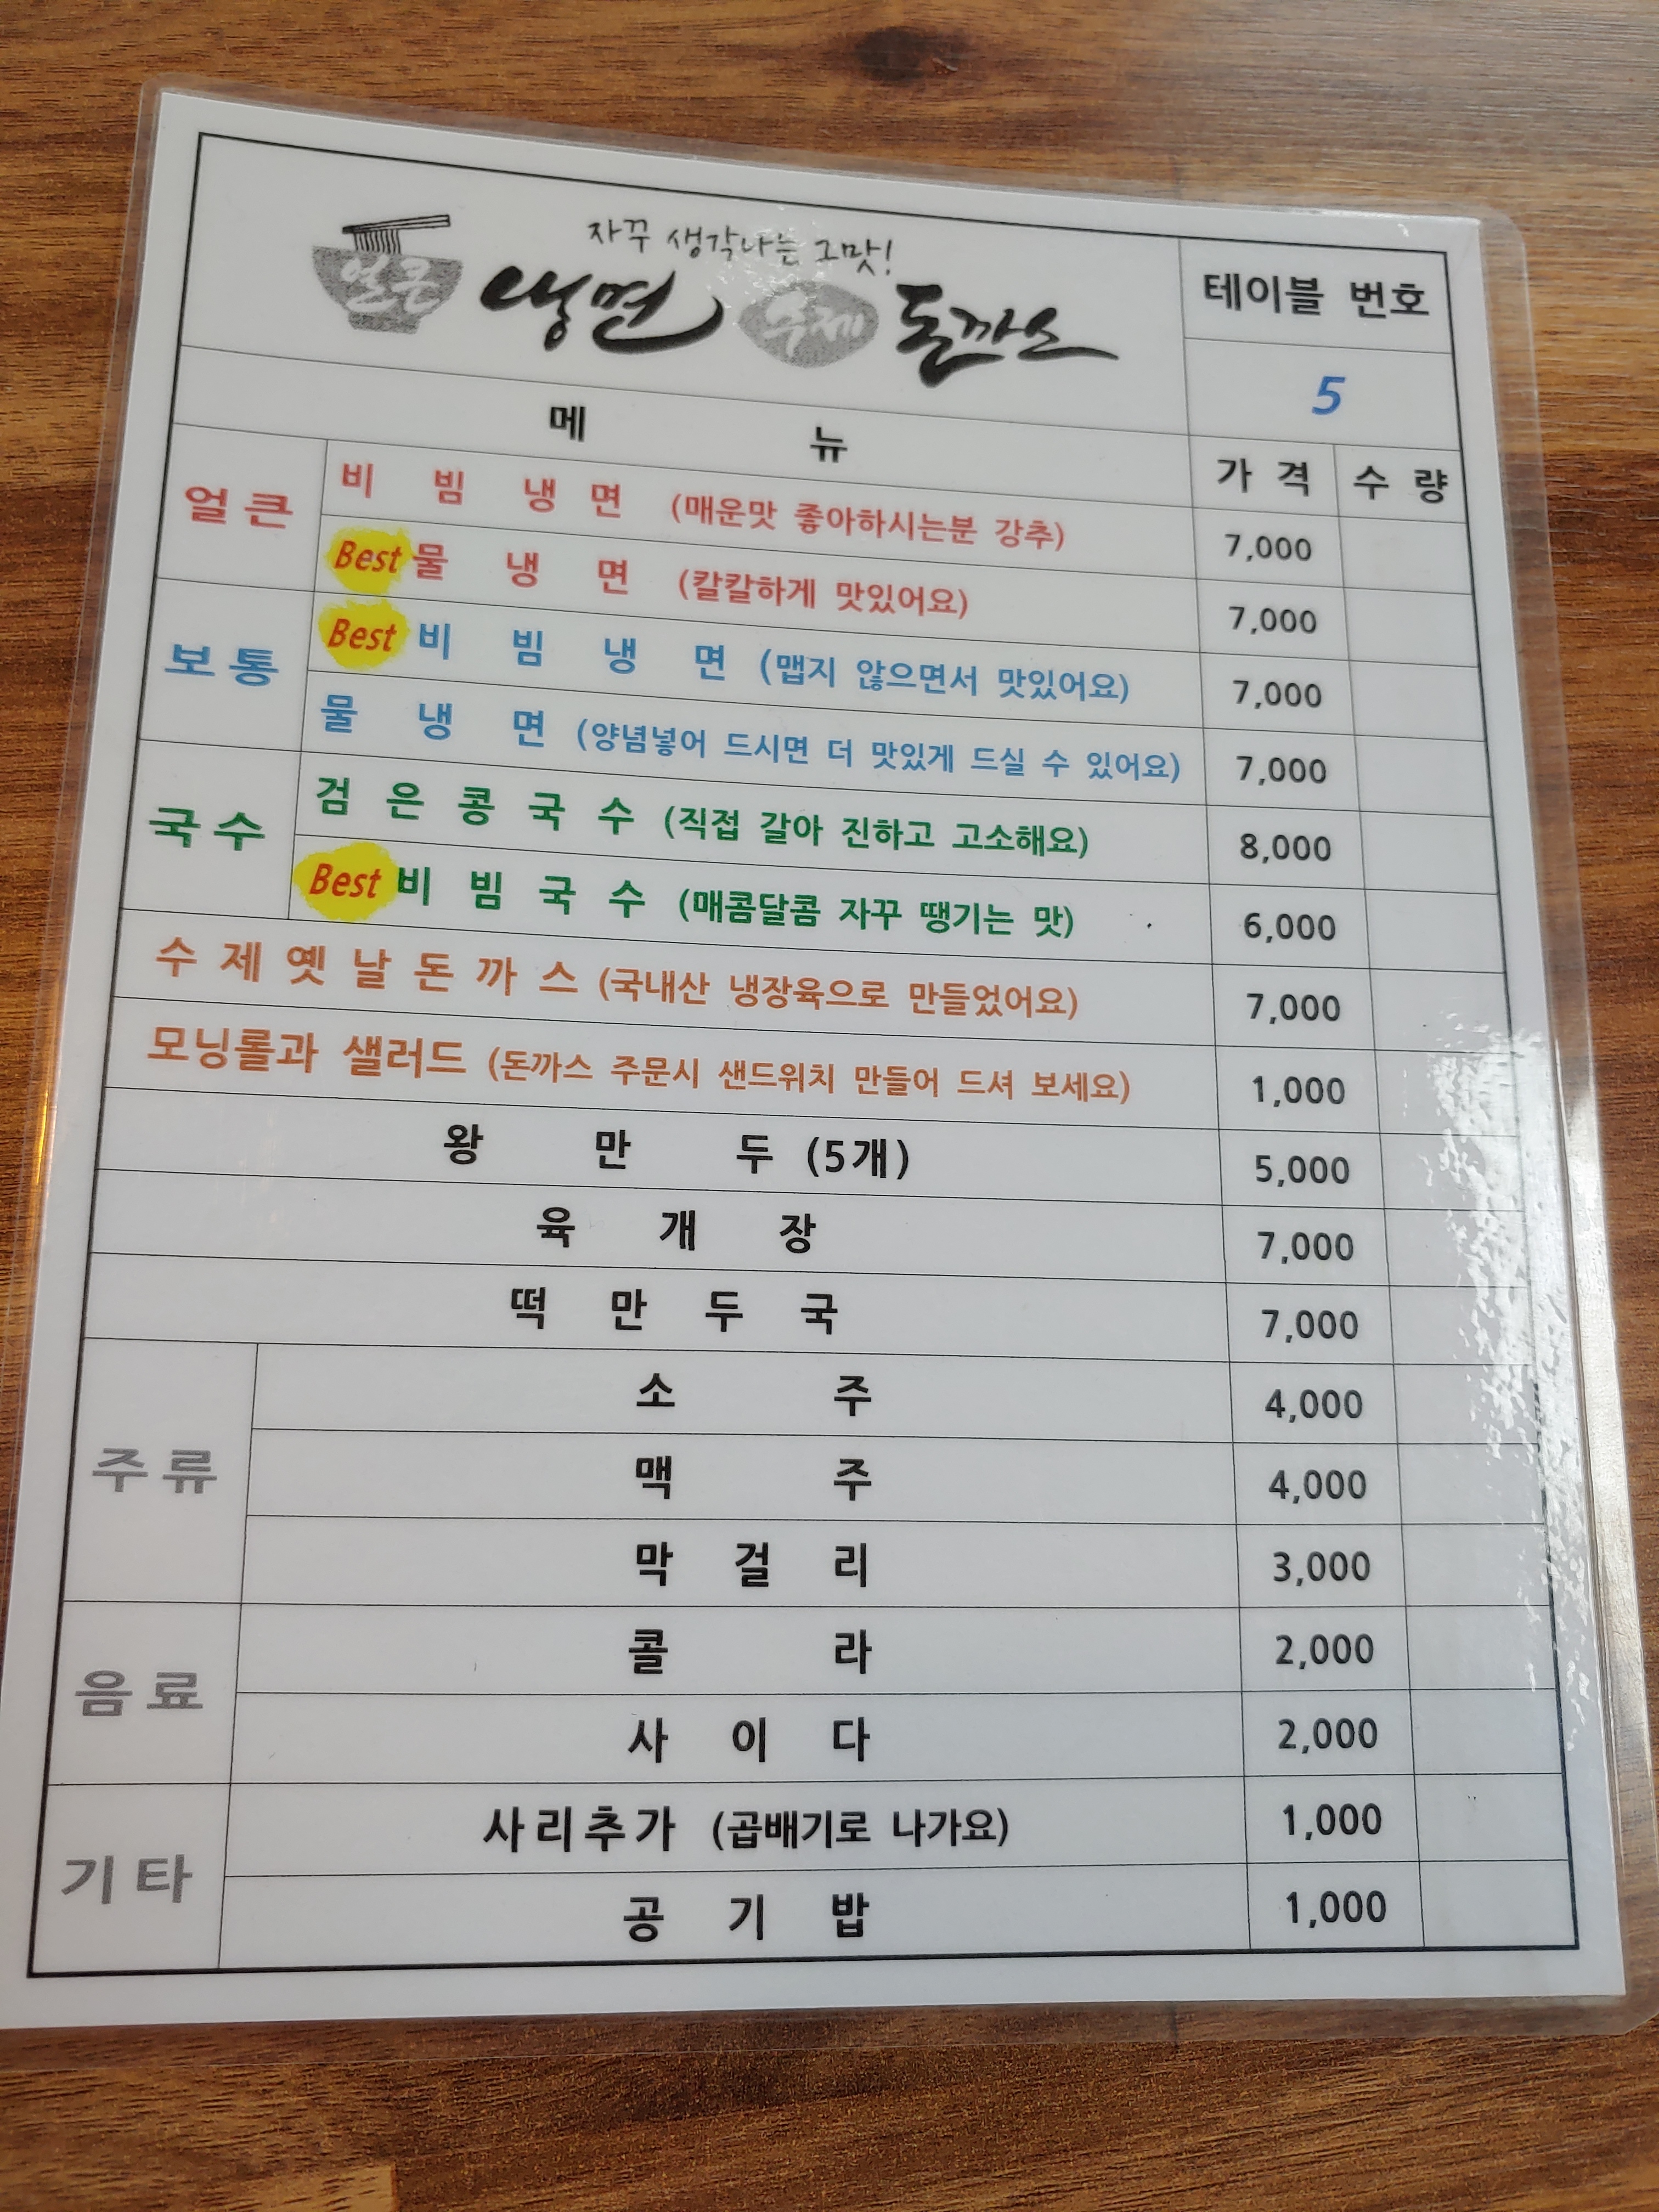 자꾸 생각나는 그맛!
얼큰 냉면 수제 돈까스
테이블 번호
5
메 뉴 가 격 수 량
얼큰
비 빔 냉 면 (매운맛 좋아하시는분 강추) 7,000
Best 물 냉 면 (칼칼하게 맛있어요) 7,000
보통
Best 비 빔 냉 면 (맵지 않으면서 맛있어요) 7,000
물 냉 면 (양념넣어 드시면 더 맛있게 드실 수 있어요) 7,000
국수
검 은 콩 국 수 (직접 갈아 진하고 고소해요) 8,000
Best 비 빔 국 수 (매콤달콤 자꾸 땡기는 맛) 6,000
수 제 옛 날 돈 까 스 (국내산 냉장육으로 만들었어요) 7,000
모닝롤과 샐러드 (돈까스 주문시 샌드위치 만들어 드셔 보세요) 1,000
왕 만 두 (5개) 5,000
육 개 장 7,000
떡 만 두 국 7,000
주류
소 주 4,000
맥 주 4,000
막 걸 리 3,000
음료
콜 라 2,000
사 이 다 2,000
기타
사리추가 (곱배기로 나가요) 1,000
공 기 밥 1,000